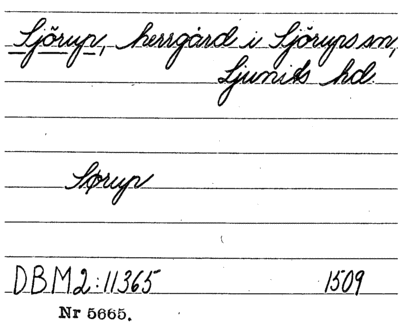 Sjörup, herrgård i Sjörups sn,
Ljunits hd.
Sørup
DBM2:11365 1509
Nr 5665.